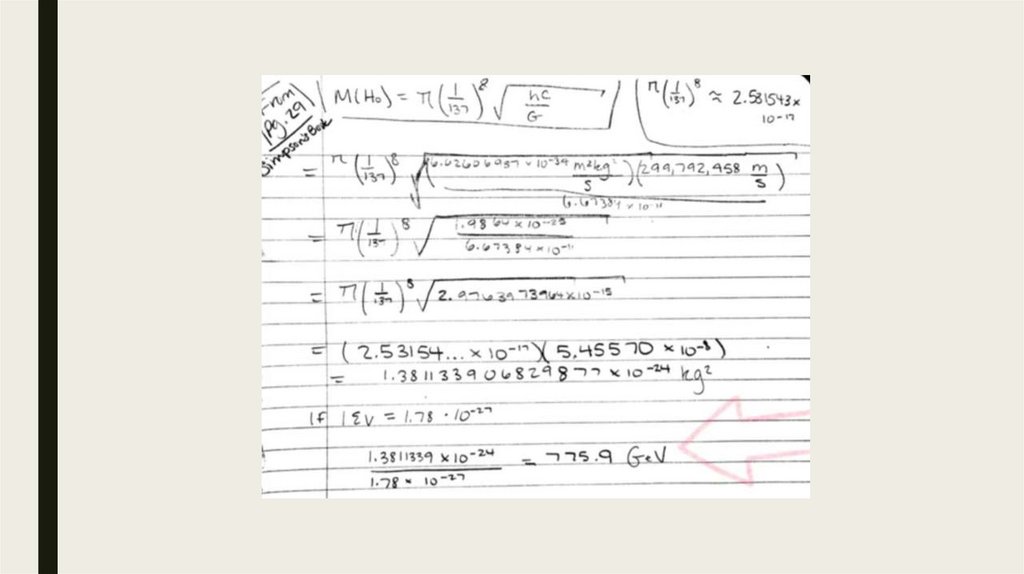 From
Pg. 29
Simpson's Book
M(H₀) = π(1/137)⁸ √(hC/G)
π(1/137)⁸ ≈ 2.531543 x
10⁻¹⁷
= π(1/137)⁸ √((6.62606957 x 10⁻³⁴ m²kg²/s)(299,792,458 m/s) / 6.67384 x 10⁻¹¹)
= π(1/137)⁸ √(1.9864 x 10⁻²⁵ / 6.67384 x 10⁻¹¹)
= π(1/137)⁸ √(2.9763973964 x 10⁻¹⁵)
= (2.53154... x 10⁻¹⁷)(5.45570 x 10⁻⁸)
= 1.381133906829877 x 10⁻²⁴ kg²
If 1 EV = 1.78 · 10⁻²⁷
1.3811339 x 10⁻²⁴ / 1.78 x 10⁻²⁷ = 775.9 GeV